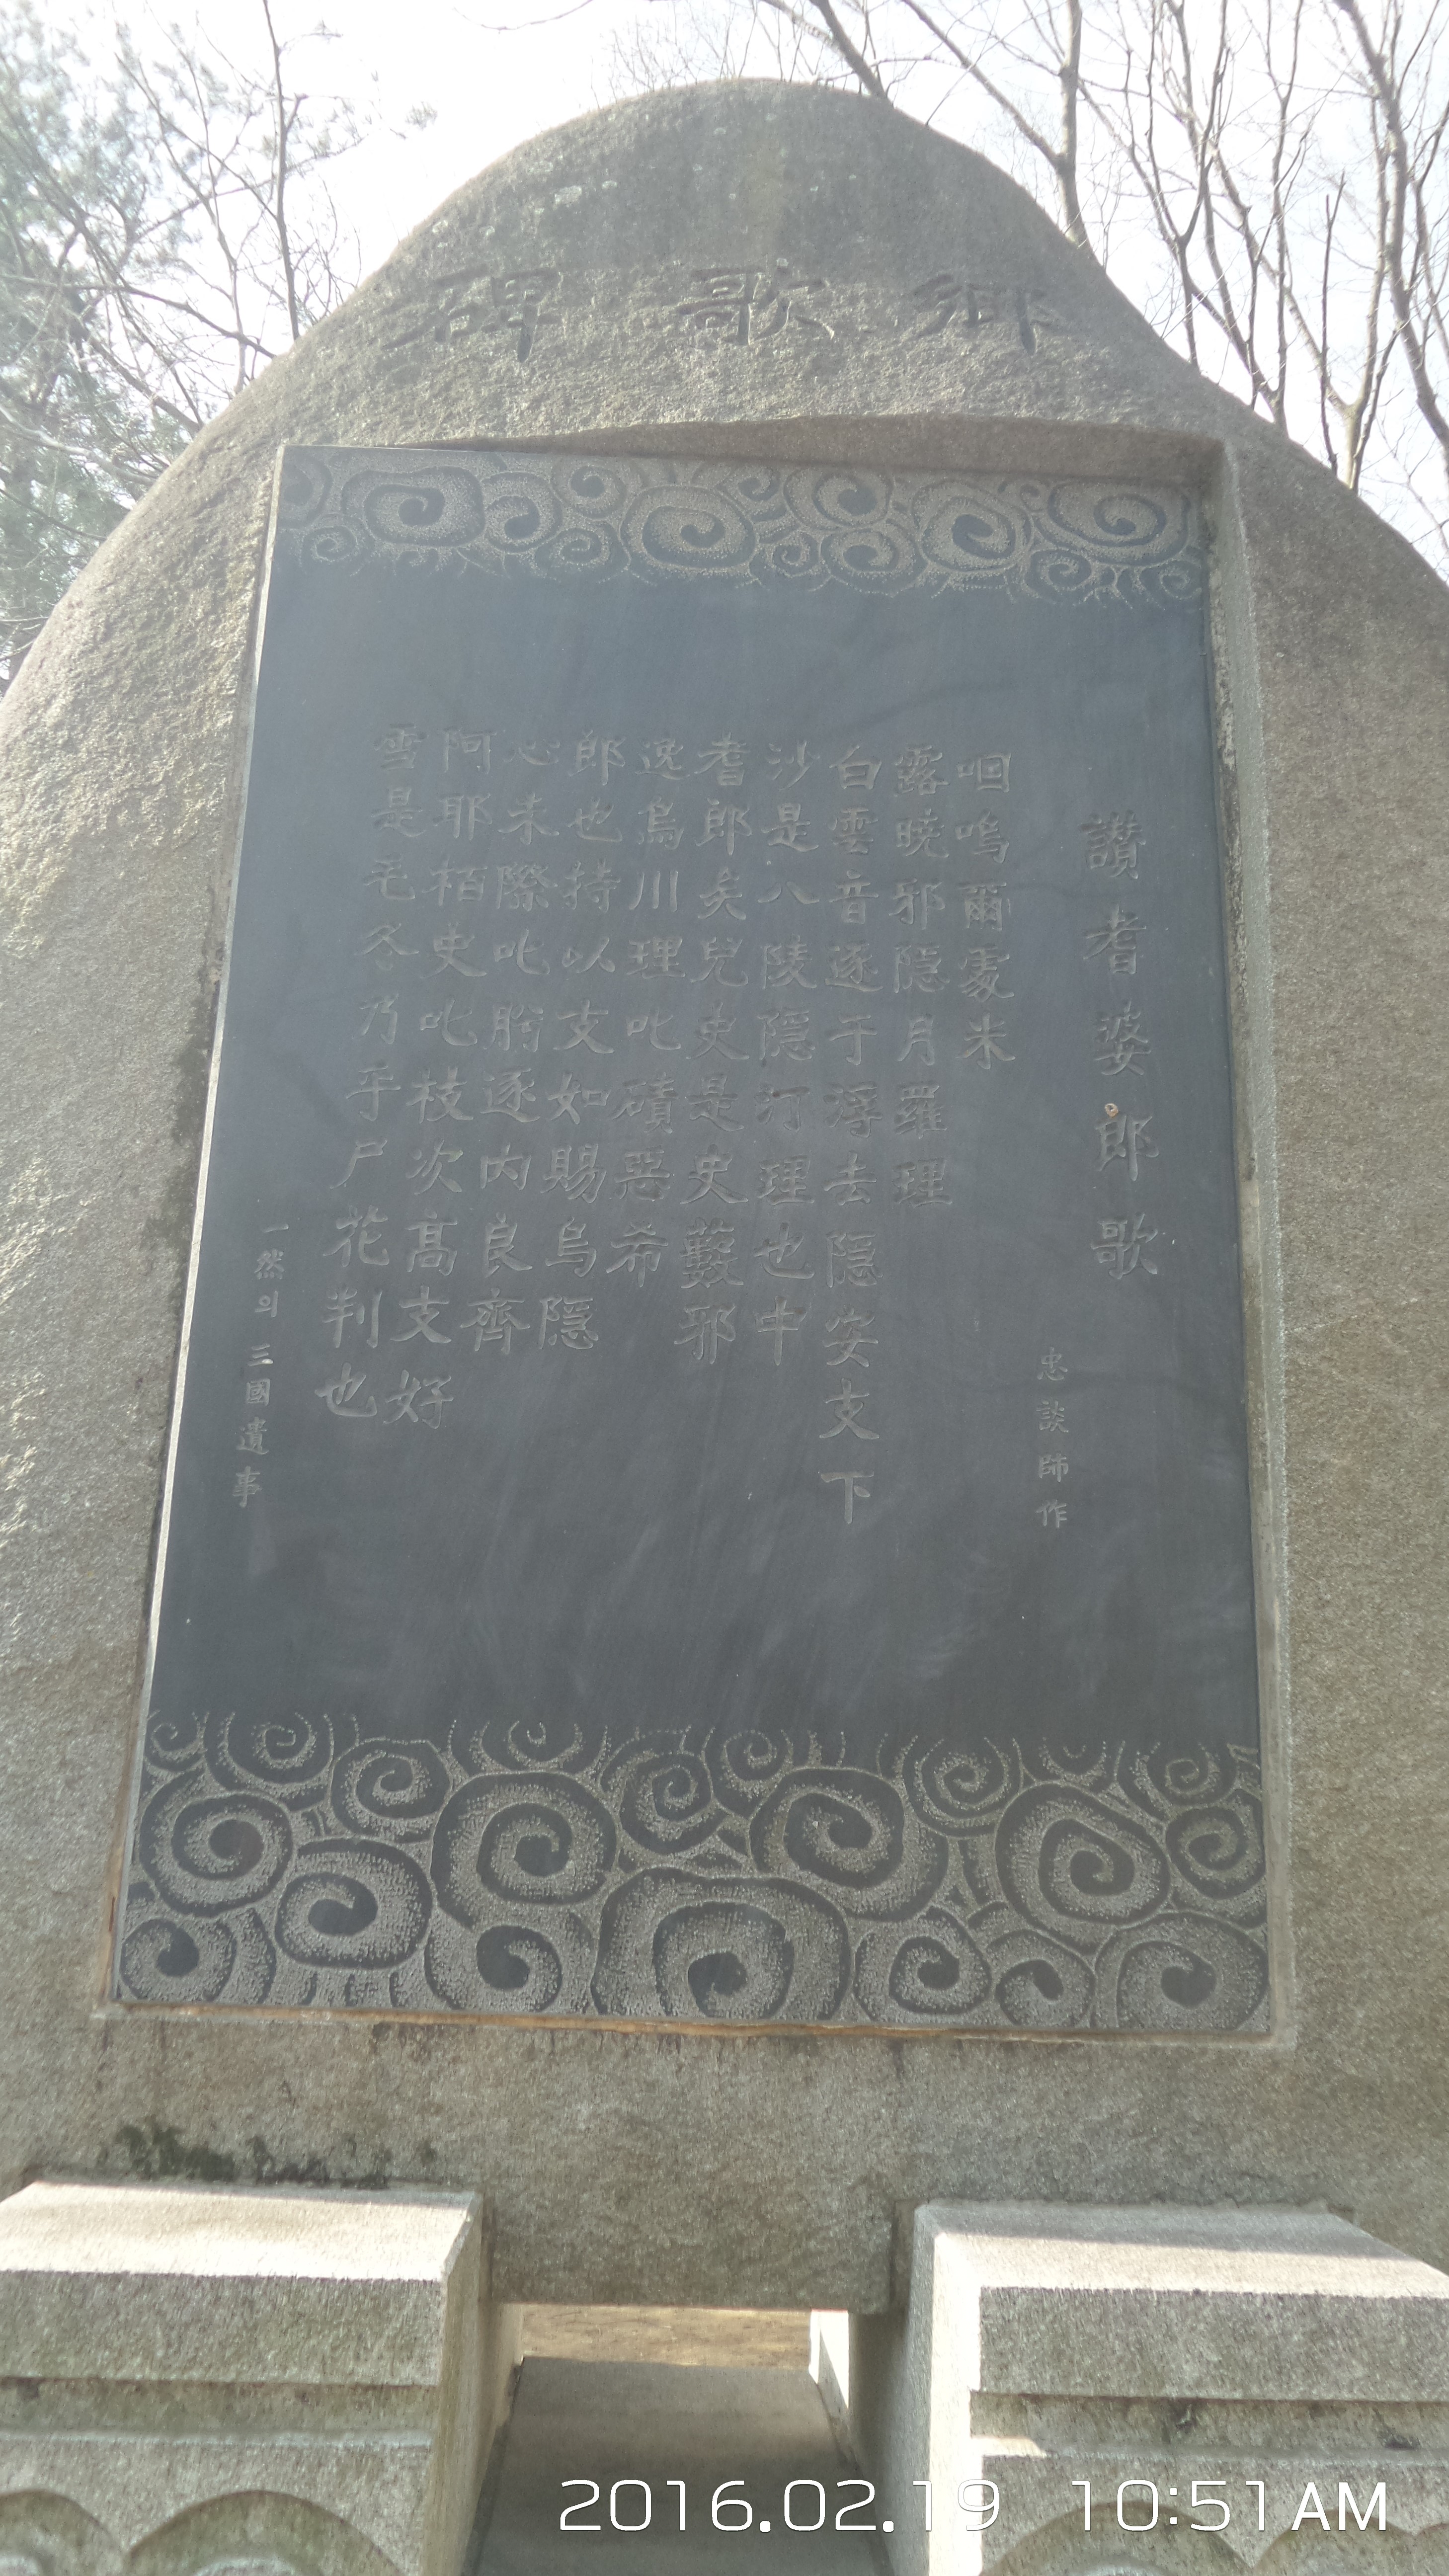 鄕歌碑
讃耆婆郎歌
忠談師作
咽嗚爾處米
露曉邪隱月羅理
白雲音逐于浮去隱安支下
沙是八陵隱汀理也中
耆郎矣皃史是史藪邪
逸烏川理叱磧惡希
郎也持以支如賜烏隱
心未際叱肹逐內良齊
阿耶栢史叱枝次高支好
雪是毛冬乃乎尸花判也
一然의 三國遺事
2016.02.19 10:51AM